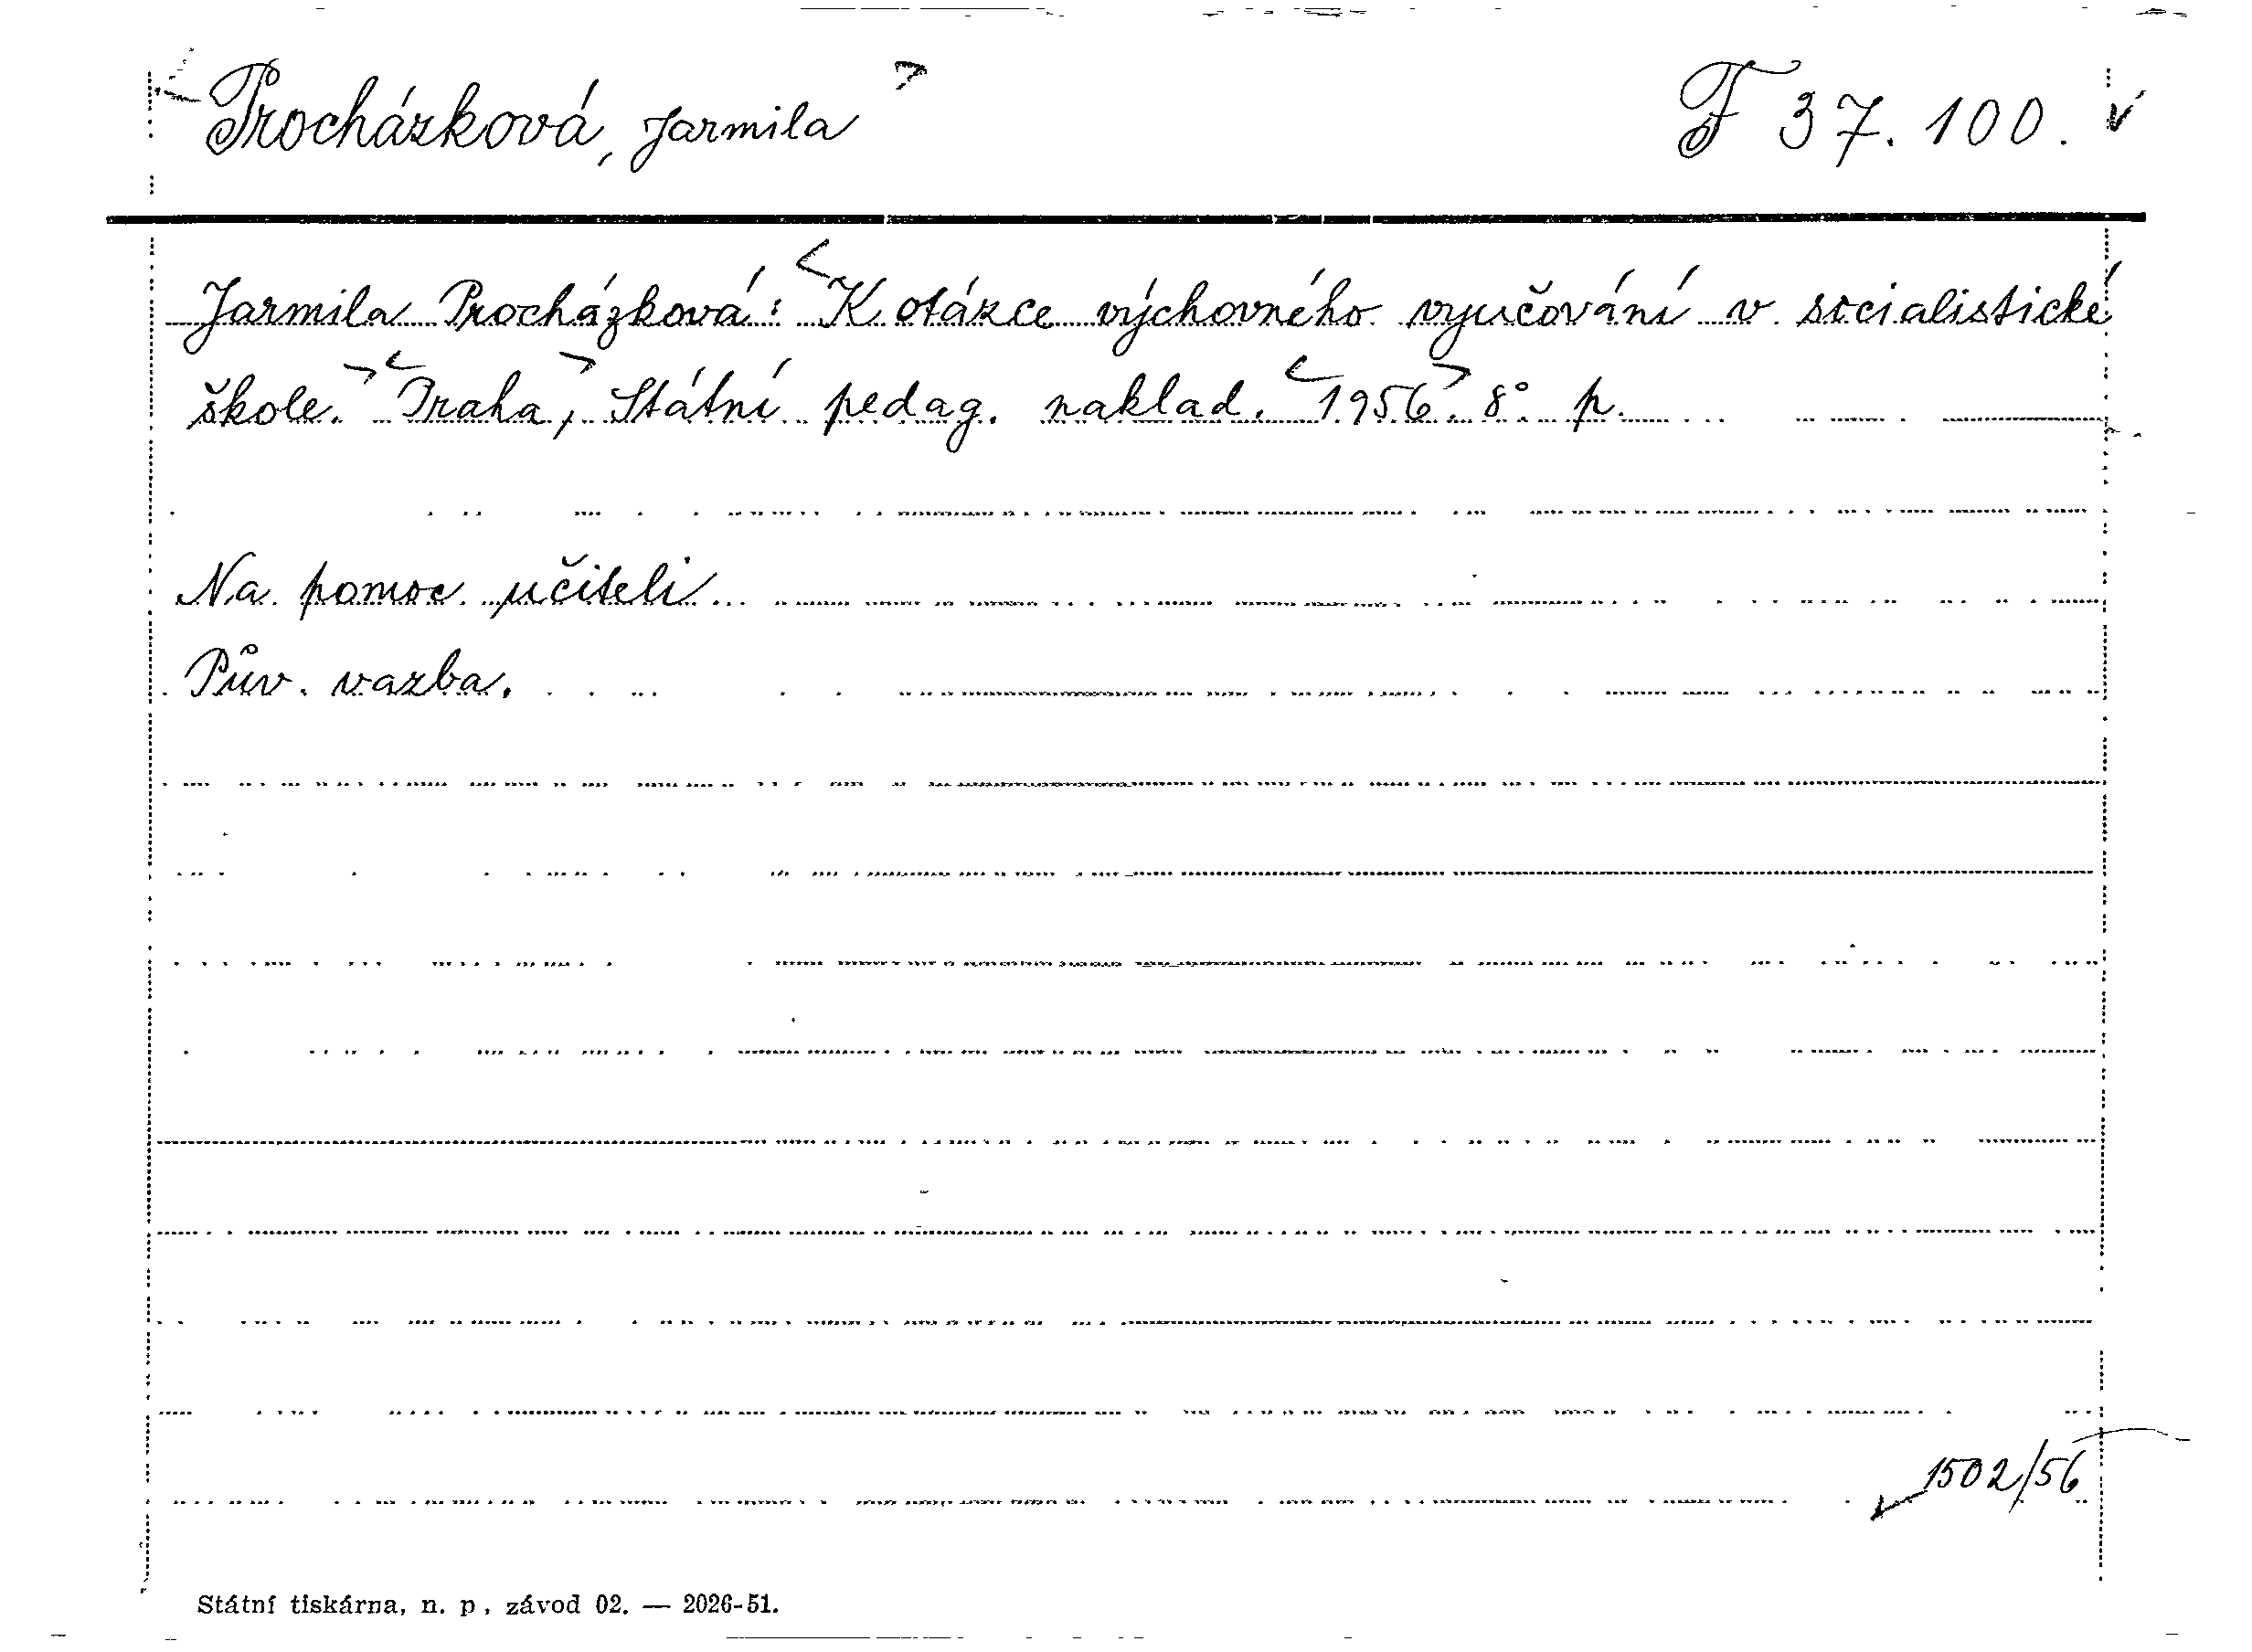 Procházková, Jarmila F 37.100.
Jarmila Procházková: K otázce výchovného vyučování v socialistické
škole. Praha, Státní pedag. naklad. 1956. 8° p.
Na pomoc učiteli
Pův. vazba.
1502/56
Státní tiskárna, n. p., závod 02. — 2026-51.